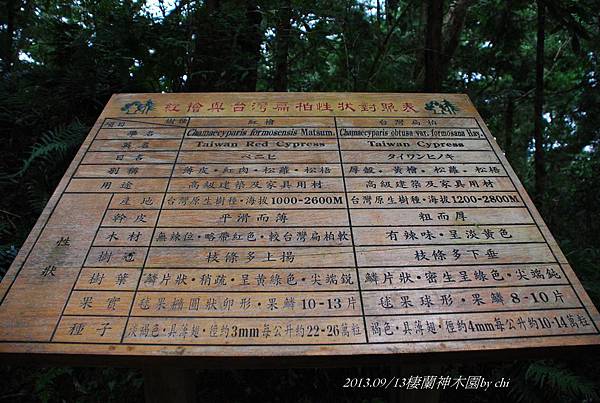 紅檜與台灣扁柏性狀對照表
項目 樹種 紅檜 台灣扁柏
學名 Chamaecyparis formosensis Matsum. Chamaecyparis obtusa var. formosana Hay.
英名 Taiwan Red Cypress Taiwan Cypress
日名 ベニヒ タイワンヒノキ
別稱 薄皮・紅肉・松蘿・松梧 厚殼・黃檜・松蘿・松梧
用途 高級建築及家具用材 高級建築及家具用材
性狀
產地 台灣原生樹種・海拔1000-2600M 台灣原生樹種・海拔1200-2800M
幹皮 平滑而薄 粗而厚
木材 無辣位・略帶紅色・較台灣扁柏軟 有辣味・呈淡黃色
樹冠 枝條多上揚 枝條多下垂
樹葉 鱗片狀・稍疏・呈黃綠色・尖端銳 鱗片狀・密生呈綠色・尖端鈍
果實 毬果橢圓狀卵形・果鱗10-13片 毬果球形・果鱗8-10片
種子 淡褐色・具薄翅・徑約3mm每公升約22-26萬粒 褐色・具薄翅・徑約4mm每公升約10-14萬粒
2013.09/13棲蘭神木園by chi